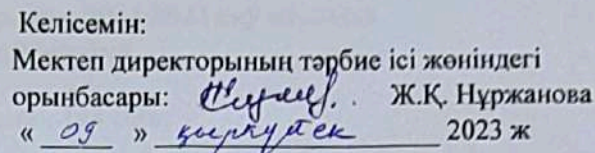 Келісемін:
Мектеп директорының тәрбие ісі жөніндегі
орынбасары: Ж.Қ. Нұржанова
« 09 » қыркүйек 2023 ж